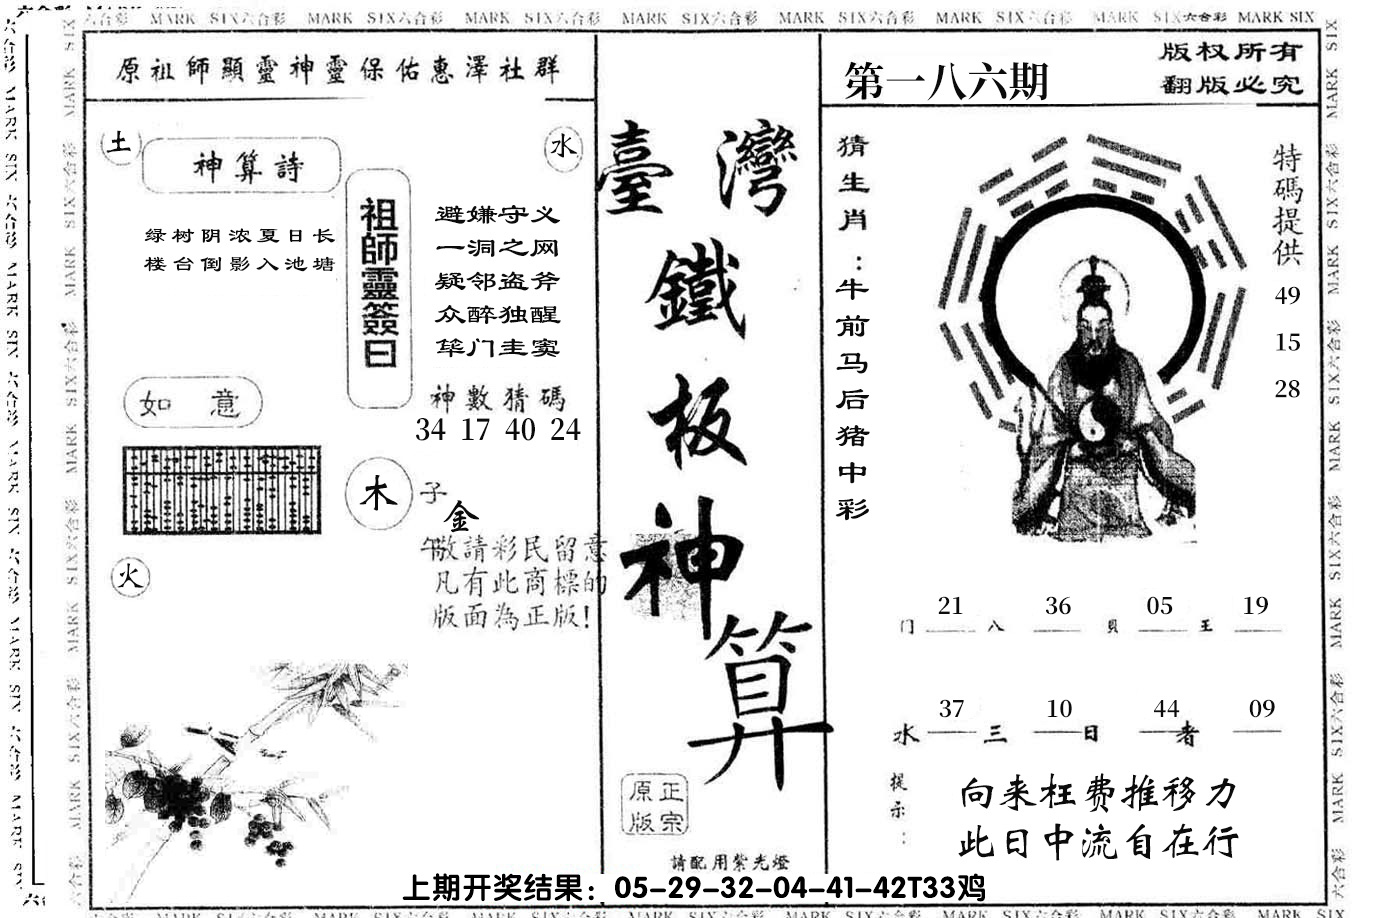 六合彩 MARK SIX六合彩 MARK SIX六合彩 MARK SIX六合彩 MARK SIX六合彩 MARK SIX六合彩 MARK SIX六合彩 MARK SIX六合彩 MARK SIX
原祖師顯靈神靈保佑惠澤社群
土
神算詩
水
绿树阴浓夏日长
楼台倒影入池塘
祖師靈簽曰
避嫌守义
一洞之网
疑邻盗斧
众醉独醒
筚门圭窦
神數猜碼
34 17 40 24
如 意
木
子
金
午
火
敬請彩民留意
凡有此商標的
版面為正版!
臺灣
鐵
板
神
算
原正
版宗
請配用紫光燈
第一八六期
版权所有
翻版必究
猜生肖:牛前马后猪中彩
特碼提供
49
15
28
门 21 八 36 貝 05 王 19
水 37 三 10 日 44 者 09
提示:
向来枉费推移力
此日中流自在行
上期开奖结果：05-29-32-04-41-42T33鸡